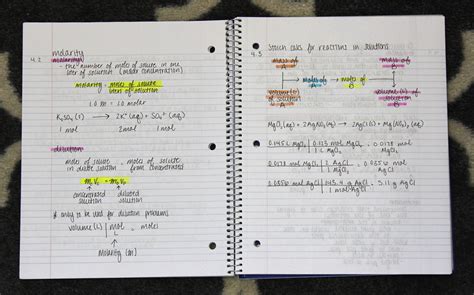 4.2 molarity
molarity
the number of moles of solute in one
liter of solution (molar concentration)
molarity = moles of solute
liters of solution
1.0 M = 1.0 molar
K₂SO₄ (s) → 2K⁺ (aq) + SO₄²⁻ (aq)
1 mol 2 mol 1 mol
dilution
moles of solute = moles of solute
in dilute solution from concentrated
M₁V₁ = M₂V₂
concentrated solution diluted solution
* only to be used for dilution problems
volume (L) | mol = moles
L
molarity (M)
4.3 Stoich calcs for reactions in solutions
mass of A mass of B
moles of A → moles of B
volume (L) of solution A volume (L) of solution B
MgCl₂ (aq) + 2AgNO₃ (aq) → 2AgCl (s) + Mg(NO₃)₂ (aq)
MgCl₂ = 0.0178 mol
1 L MgCl₂
0.0178 mol MgCl₂ | 2 AgCl = 0.0356 mol
1 MgCl₂ AgCl
0.0356 mol AgCl | 143.4 g AgCl = 5.11 g AgCl
1 mol AgCl